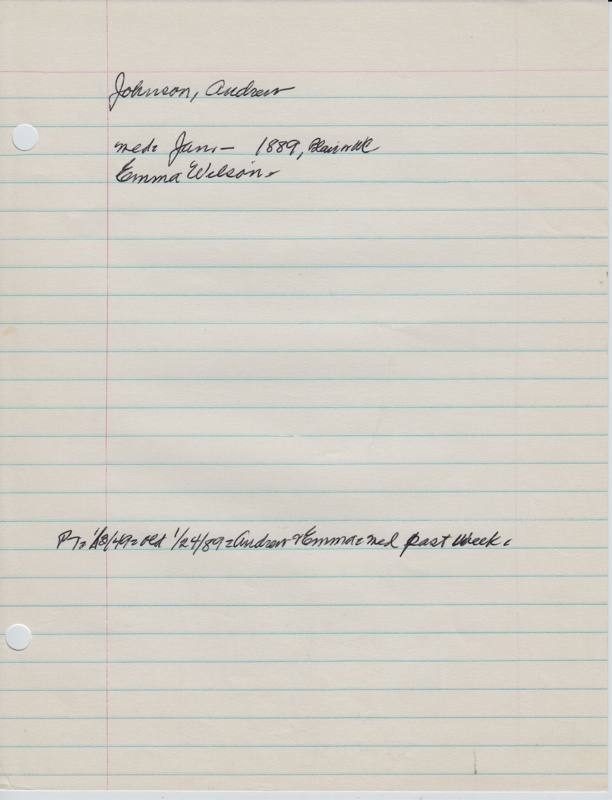 Johnson, Andrew
med: Jan. - 1889, Blair
Emma Wilson.
1/13/49 = old 1/24/89 = Andrew & Emma = med past week.